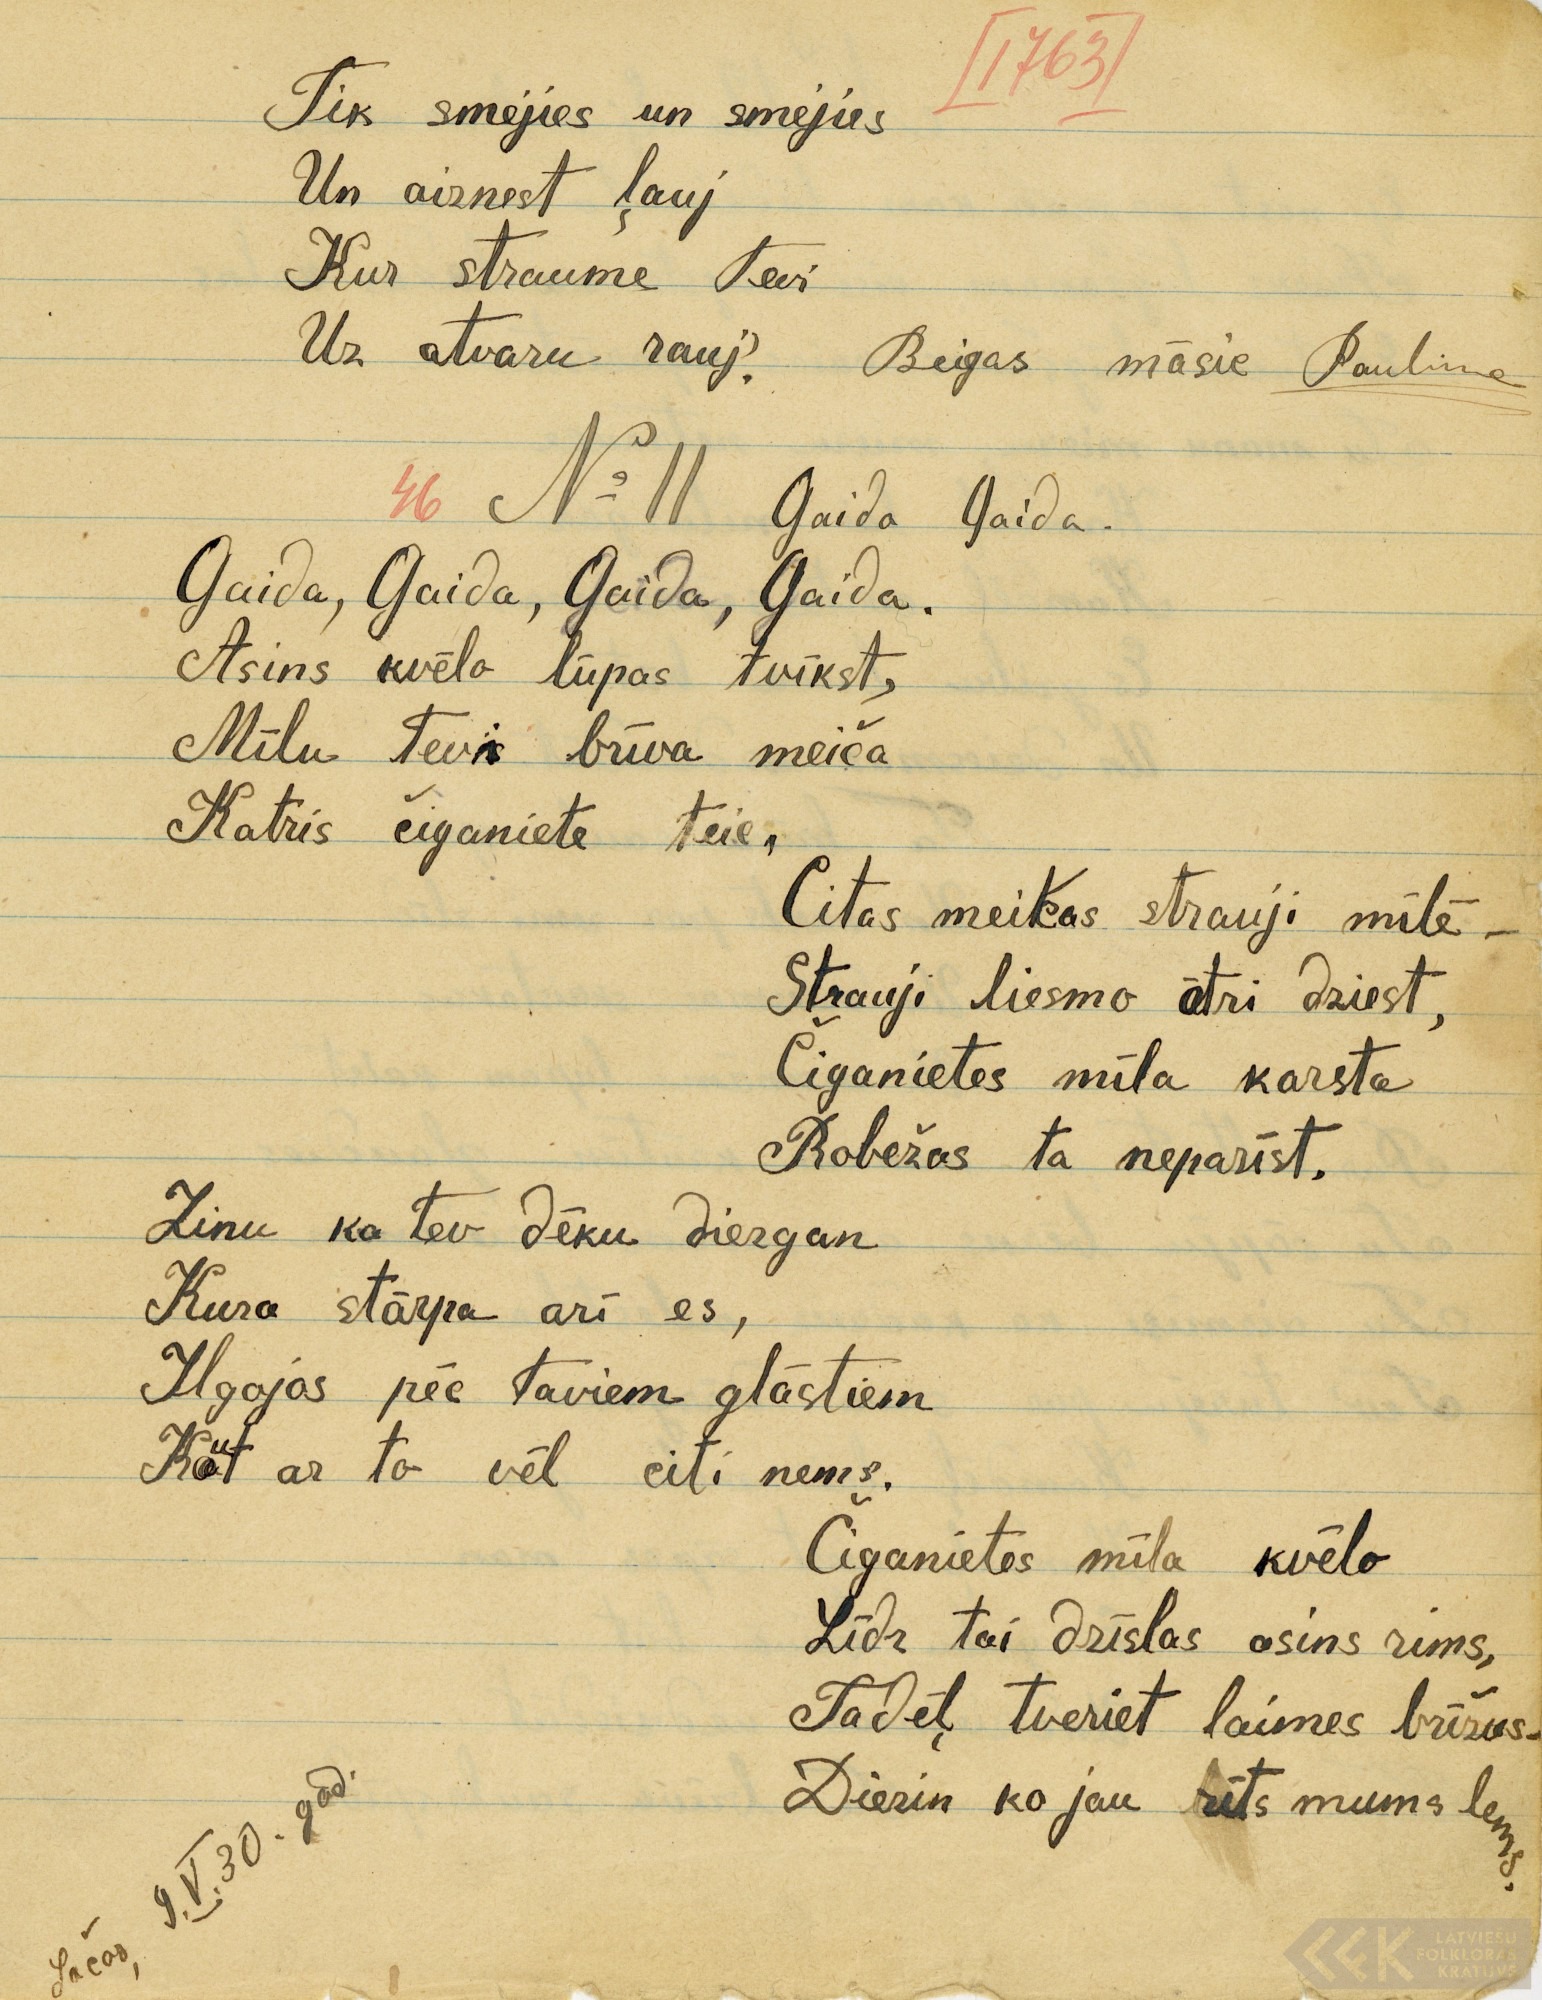 [1763]
Tik smejies un smejies
Un aiznest ļauj
Kur straume tevi
Uz atvaru rauj?. Beigas māsie Pauline
46 № 11 Gaida Gaida.
Gaida, Gaida, Gaida, Gaida.
Asins kvēlo lūpas tvīkst,
Mīlu tevis brīva meiča
Katris čiganiete teic,
Citas meikas strauji mīlē -
Strauji liesmo ātri dziest,
Čiganietes mīla karsta
Robežas ta neparīst.
Zinu ka tev dēku diezgan
Kura stārpa arī es,
Ilgojos pēc taviem glāstiem
Kaut ar to vēl citi nems.
Čiganietes mīla kvēlo
Līdz tai dzīslas asins rims,
Tadeļ tveriet laimes brīžus-
Diezin ko jau rīts mums lems.
9.V.30. gad.
LATVIEŠU
FOLKLORAS
KRĀTUVE